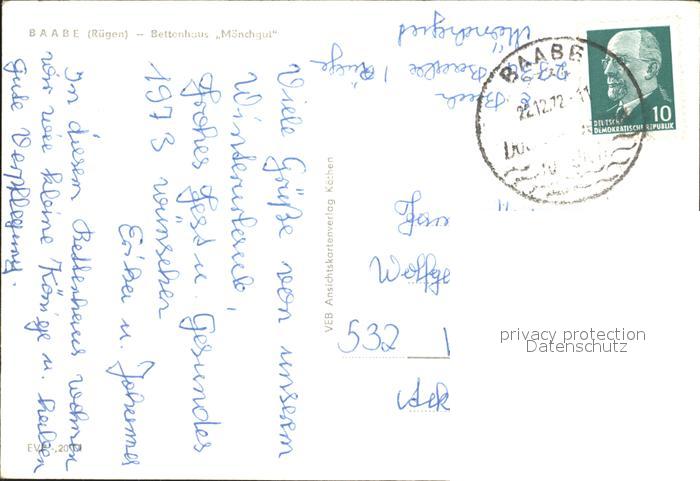 BAABE (Rügen) – Bettenhaus „Mönchgut"
Viele Grüße von unserm
Winterurlaub,
frohes Fest u. Gesundes
1973 wünschen
Erika u. Johannes
In diesem Bettenhaus wohnen
wir wie kleine Könige u. haben
gute Verpflegung.
VEB Ansichtskartenverlag Köthen
Baabe / Rüge
"Mönchgut
BAABE
22.12.72-11
DEUTSCHE
DEMOKRATISCHE REPUBLIK
10
532
privacy protection
Datenschutz